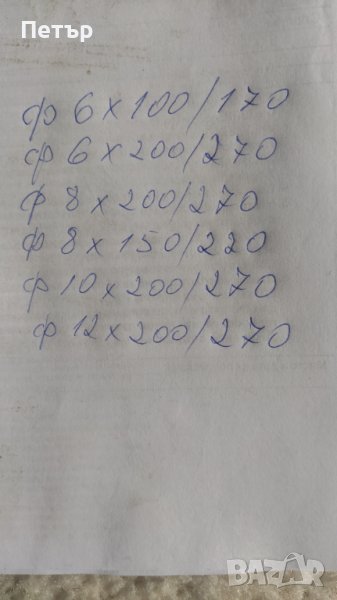 Петър
ф 6 x 100/170
ф 6 x 200/270
ф 8 x 200/270
ф 8 x 150/220
ф 10 x 200/270
ф 12 x 200/270
BAZAR